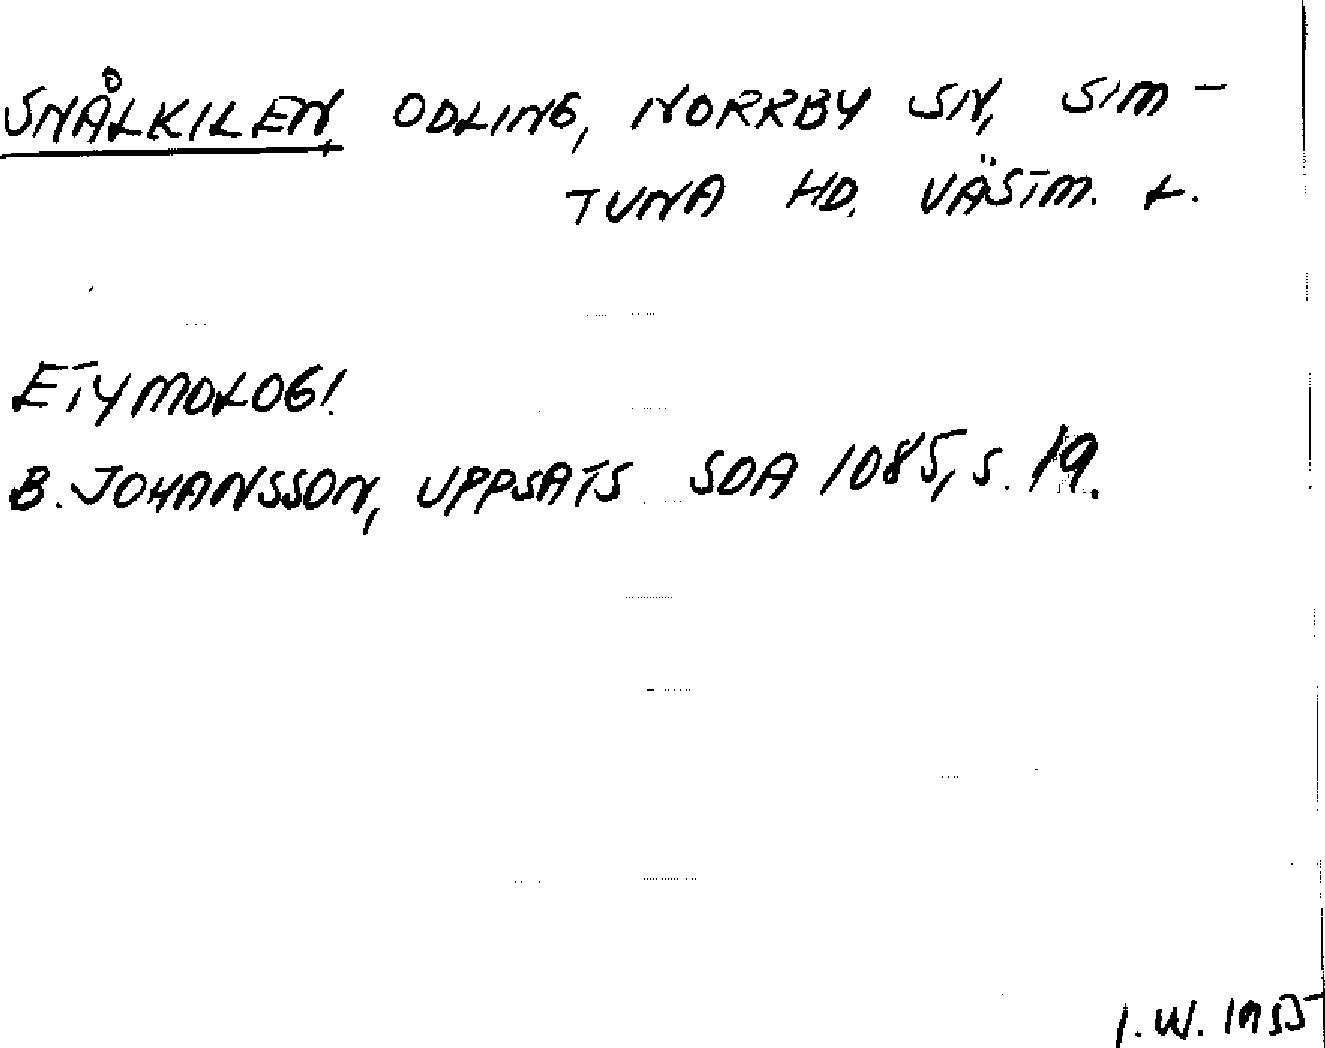 SNÅLKILEN, ODLING, NORRBY SN, SIM-
TUNA HD. VÄSTM. L.
ETYMOLOGI
B. JOHANSSON, UPPSATS SOA 1085, S. 19.
I.W.